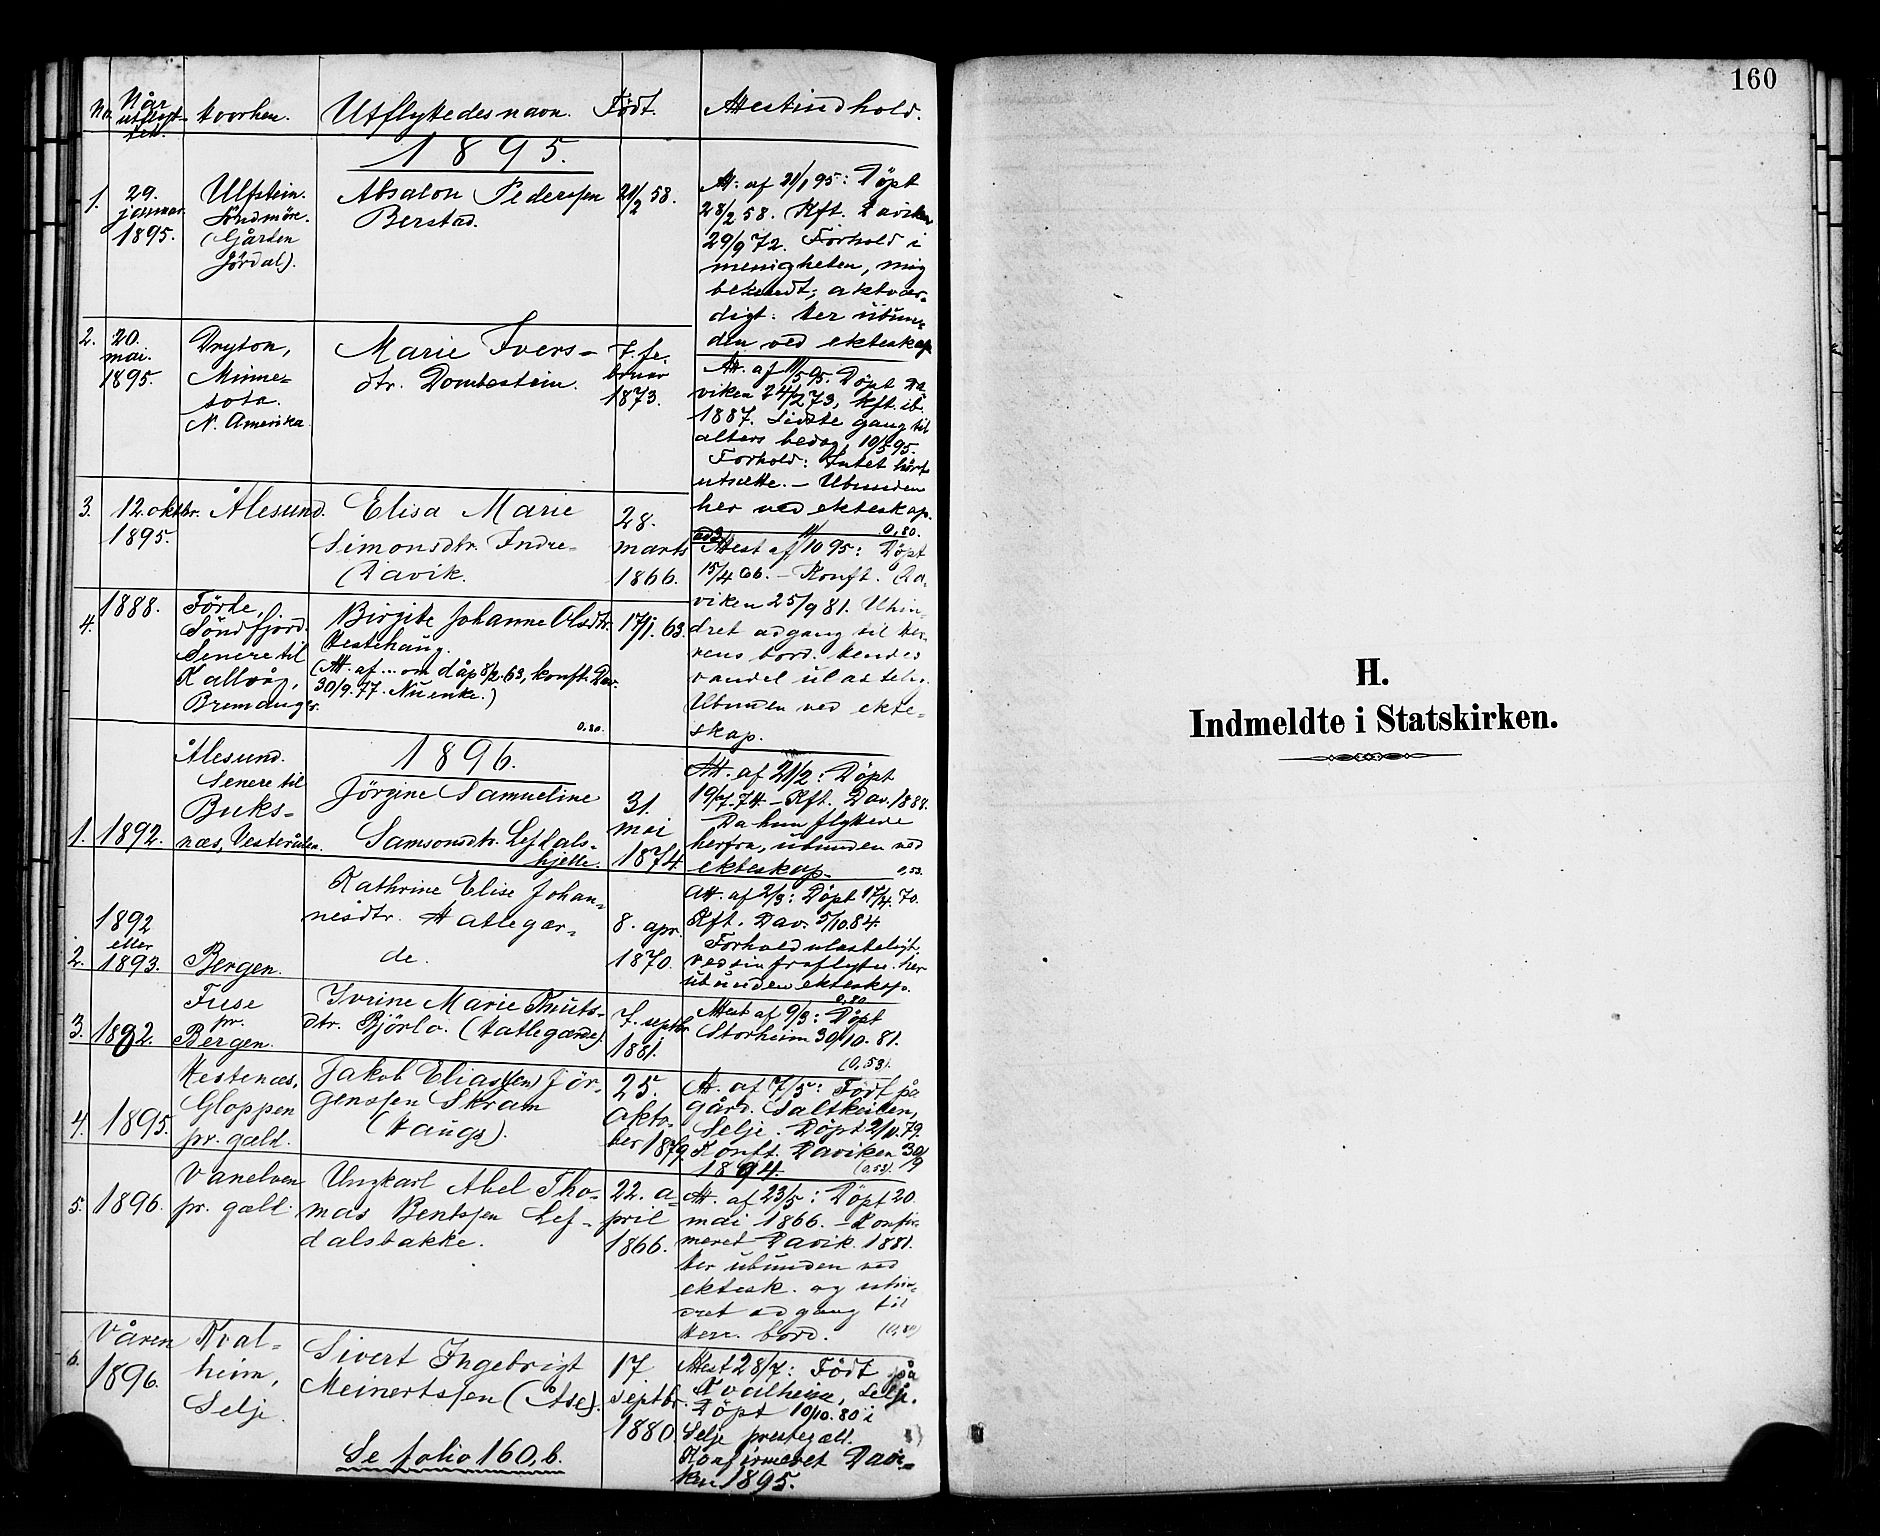 No. Når utflyt-tet. Hvorhen. Utflyttedes navn. Født. Attestindhold.
1895.
1. 29. januar 1895. Ulfstein. Söndmöre. (Gården Jördal).
Absalon Pederssen Berstad.
21/2 58.
Att. af 21/1 95: Döpt
28/2 58. Kft. Daviken
29/9 72. Forhold i
menigheten, mig
bekendt; aktvær-
digt. Her ubun-
den ved ekteskap
2. 20. mai. 1895. Dryton, Minne-sota. N. Amerika.
Marie Ivers-
dtr. Dombestein.
7. fe-bruar 1873.
Att. af 11/5 95. Döpt Da
viken 24/2 73, kft. ib.
1887. Sidste gang til
alters bedag, 10/5 95.
Forhold: Intet hört
utsætte. – Ubunden
her ved ekteskap.
0,80.
3. 12. oktbr. 1895. Ålesund.
Elisa Marie
Simonsdtr. Indre-
Davik.
28. marts 1866.
ad 3
Attest af 11/10 95: Döpt
15/4 66. – Konft. Da-
viken 25/9 81. Uhin-
dret adgang til her-
rens bord. Kendes
vandel ulastelig.
Ubunden ved ekte-
skap.
4. 1888. Förde, Söndfjord. Senere til Kallvåg, Bremanger.
Birgite Johanne Olsdtr.
Hestehaug.
(Att. af ... om dåp 8/2 63, konft. Dav.
30/9. 77. Nu enke.)
0,80.
17/1. 63.
1896.
1. 1892. Ålesund. Senere til Buks-næs, Vesterålen.
Jörgine Samueline
Samsonsdtr. Lefdals-
hjelle.
31. mai 1874.
Att. af 21/2: Döpt
19/7. 74. – Kft. Dav. 1888.
Da hun flyttede
herfra, ubunden ved
ekteskap.
0,53.
2. 1892 eller 1893. Bergen.
Kathrine Elise Johan-
nesdtr. Hatlegær-
de.
8. apr. 1870.
Att. af 2/3: Döpt 17/4. 70.
Kft. Dav. 5/10. 84.
Forhold ulasteligt
ved sin fraflytn. her
ubunden ekteskap.
0,80
3. 1882. Fuse pr. Bergen.
Ivrine Marie Knuts-
dtr. Björlo. (Hatlegærde).
7. septbr. 1881.
Attest af 9/3: Döpt
Storheim 30/10. 81.
(0,53).
4. 1895. Hestenæs, Gloppen pr. gæld.
Jakob Elias(sen) Jör-
genssen Skram
(Haugs).
25. Okto-ber 1879.
Att. af 7/5: Født på
gård. Saltkeilen,
Selje. Döpt 2/11. 79.
Konft. Daviken 30/9
1894. (0,53).
5. 1896. Vanelven pr. gæld.
Ungkarl Abel Tho-
mas Bentssen Lef-
dalsbakke.
22. a-pril 1866.
Att. af 23/5: Döpt 20.
mai 1866. – Konfir-
meret Davik. 1881.
Her ubunden ved
ektesk. og uhin-
dret adgang til
Herr. bord. (0,80)
6. Våren 1896. Kval-heim, Selje.
Sivert Ingebrigt
Meinertssen (Ase).
17. septbr. 1880.
Attest 28/7: Födt på
Kvalheim, Selje.
Döpt 10/10. 80 i
Selje prestegæld.
Konfirmeret Davi-
ken 1895.
Se folio 160, b.
160
H.
Indmeldte i Statskirken.